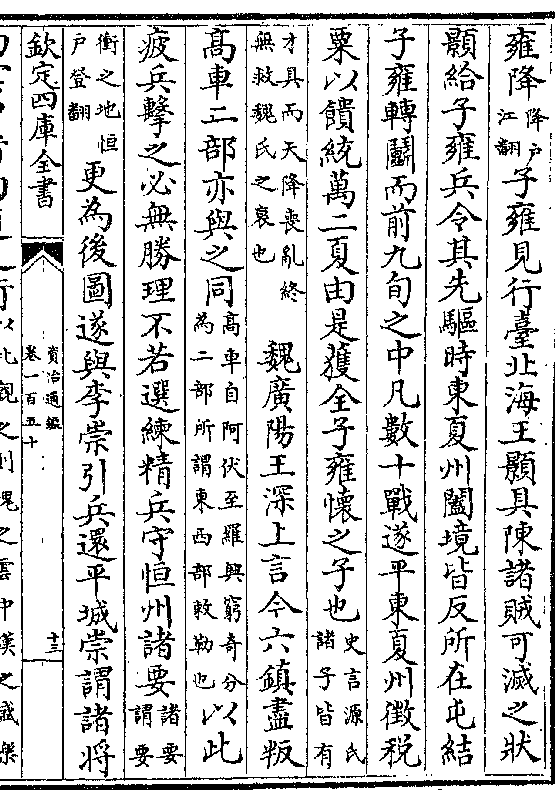 雍降降戶江翻子雍見行臺北海王顥具陳諸賊可滅之狀
顥給子雍兵令其先驅時東夏州闔境皆反所在屯結
子雍轉鬭而前九旬之中凡數十戰遂平東夏州徵稅
粟以饋統萬二夏由是獲全子雍懷之子也史言源氏諸子皆有
才具而天降喪亂終無救魏氏之衰也 魏廣陽王深上言今六鎮盡叛
高車二部亦與之同高車自阿伏至羅與窮奇分為二部所謂東西部敕勒也以此
疲兵擊之必無勝理不若選練精兵守恒州諸要諸要謂要
衝之地恒戶登翻更為後圖遂與李崇引兵還平城崇謂諸將
欽定四庫全書
資治通鑑
卷一百五十
十三
之雲中漢之盛樂